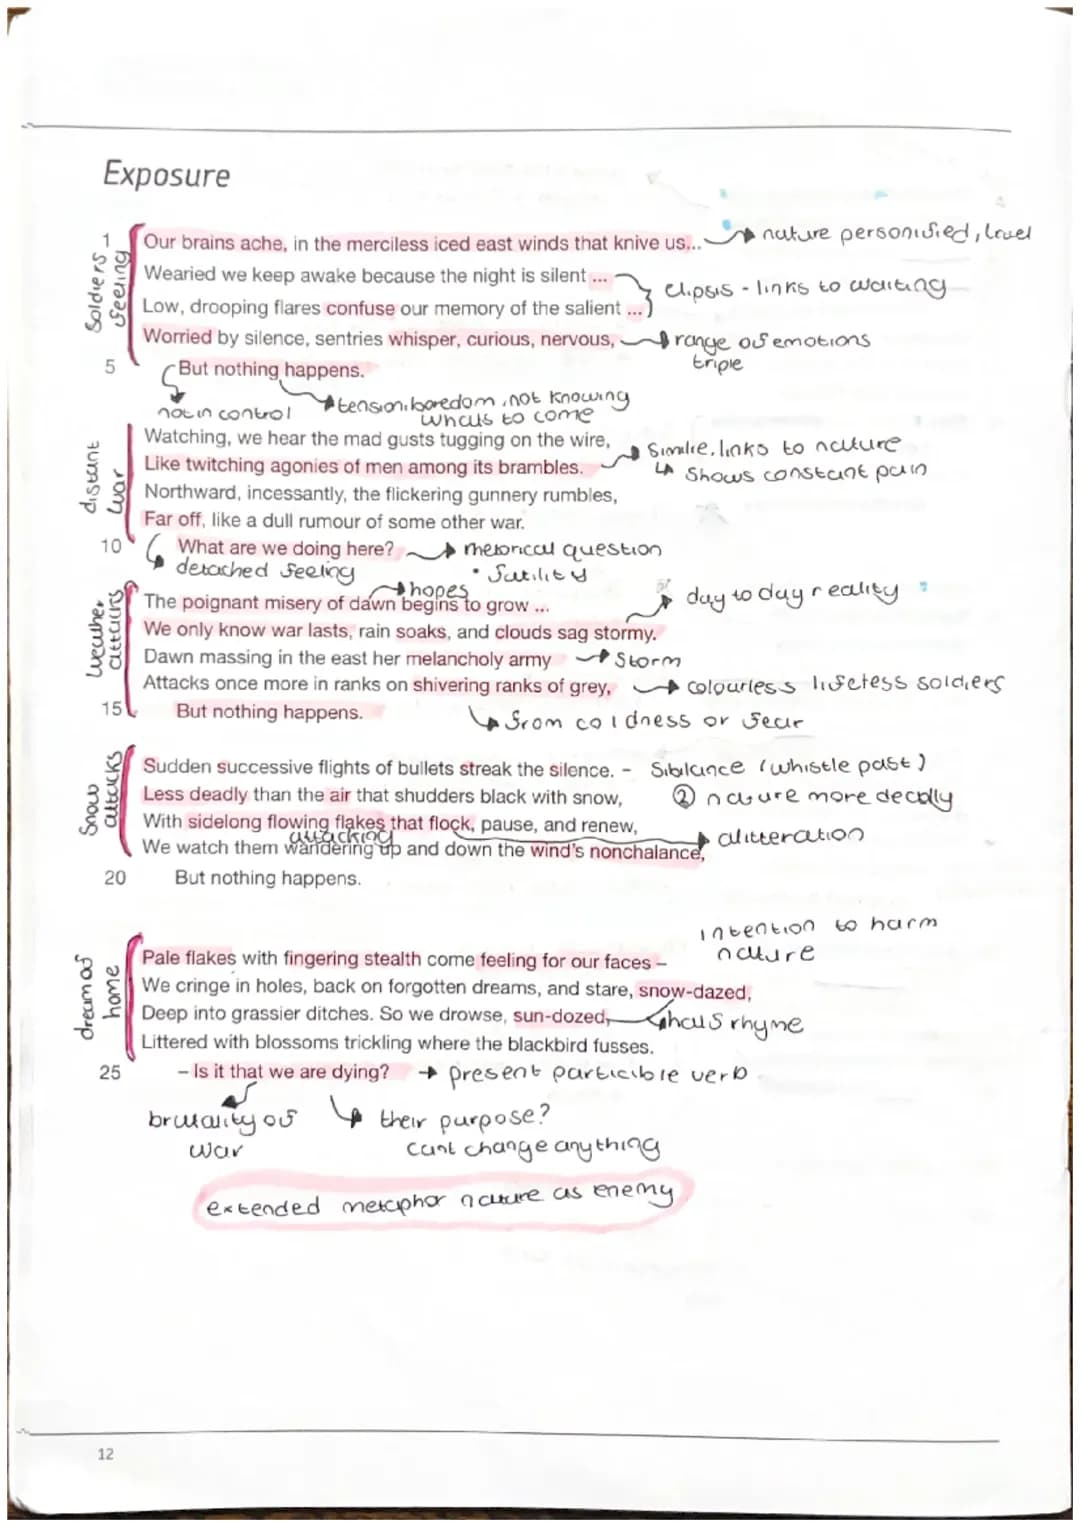 Exposure
1 Our brains ache, in the merciless iced east winds that knive us... nature personified, cruel
Soldiers feeling
Wearied we keep awake because the night is silent ...
elipsis - links to waiting
Low, drooping flares confuse our memory of the salient ...
Worried by silence, sentries whisper, curious, nervous, range of emotions
triple
5 But nothing happens.
not in control
tension, boredom, not knowing
whats to come
distant war
Watching, we hear the mad gusts tugging on the wire, Similie, links to nature
Like twitching agonies of men among its brambles. Shows constant pain
Northward, incessantly, the flickering gunnery rumbles,
Far off, like a dull rumour of some other war.
10 What are we doing here? rhetorical question
detached feeling • futility
hopes
weather attacks
The poignant misery of dawn begins to grow ... day to day reality
We only know war lasts, rain soaks, and clouds sag stormy.
Dawn massing in the east her melancholy army Storm
Attacks once more in ranks on shivering ranks of grey, colourless lifeless soldiers
15 But nothing happens. from coldness or fear
Snow attacks
Sudden successive flights of bullets streak the silence. - Sibilance (whistle past)
Less deadly than the air that shudders black with snow, ② nature more deadly
With sidelong flowing flakes that flock, pause, and renew,
attacking alitteration
We watch them wandering up and down the wind's nonchalance,
20 But nothing happens.
intention to harm
nature
dream of home
Pale flakes with fingering stealth come feeling for our faces –
We cringe in holes, back on forgotten dreams, and stare, snow-dazed,
Deep into grassier ditches. So we drowse, sun-dozed, half rhyme
Littered with blossoms trickling where the blackbird fusses.
25 – Is it that we are dying? present particible verb
brutality of
war
their purpose?
cant change anything
extended metaphor nature as enemy
12